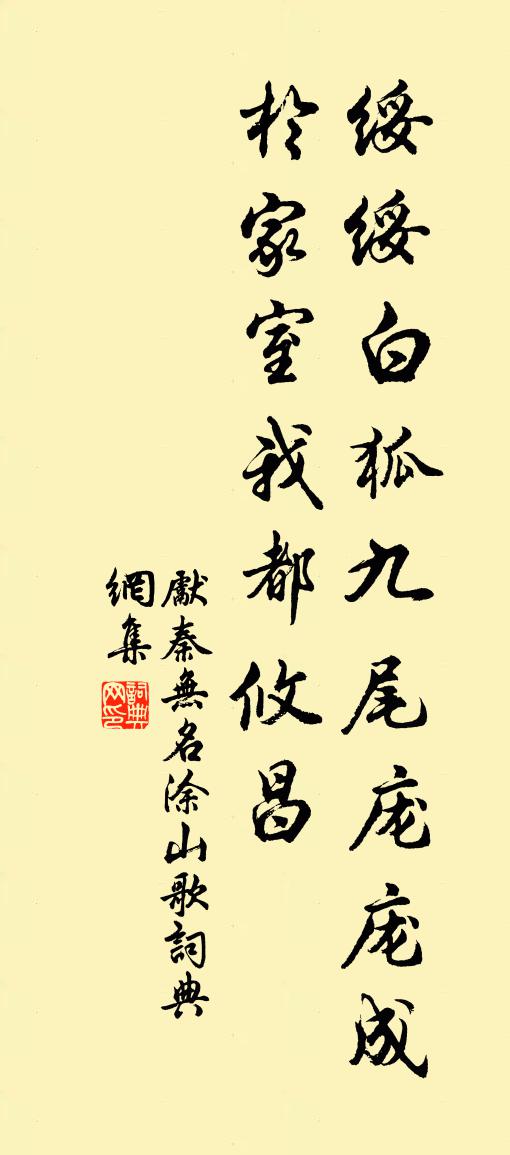 綏綏白狐九尾庬庬成
於家室我都攸昌
獻秦無名涂山歌詞典
網集
詞典
网印